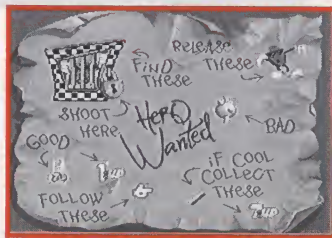 FIND
THESE
RELEASE
THESE
SHOOT
HERE
HERO
Wanted
BAD
GOOD
1UP
FOLLOW
THESE
iF COOL
COLLECT
THESE
7UP